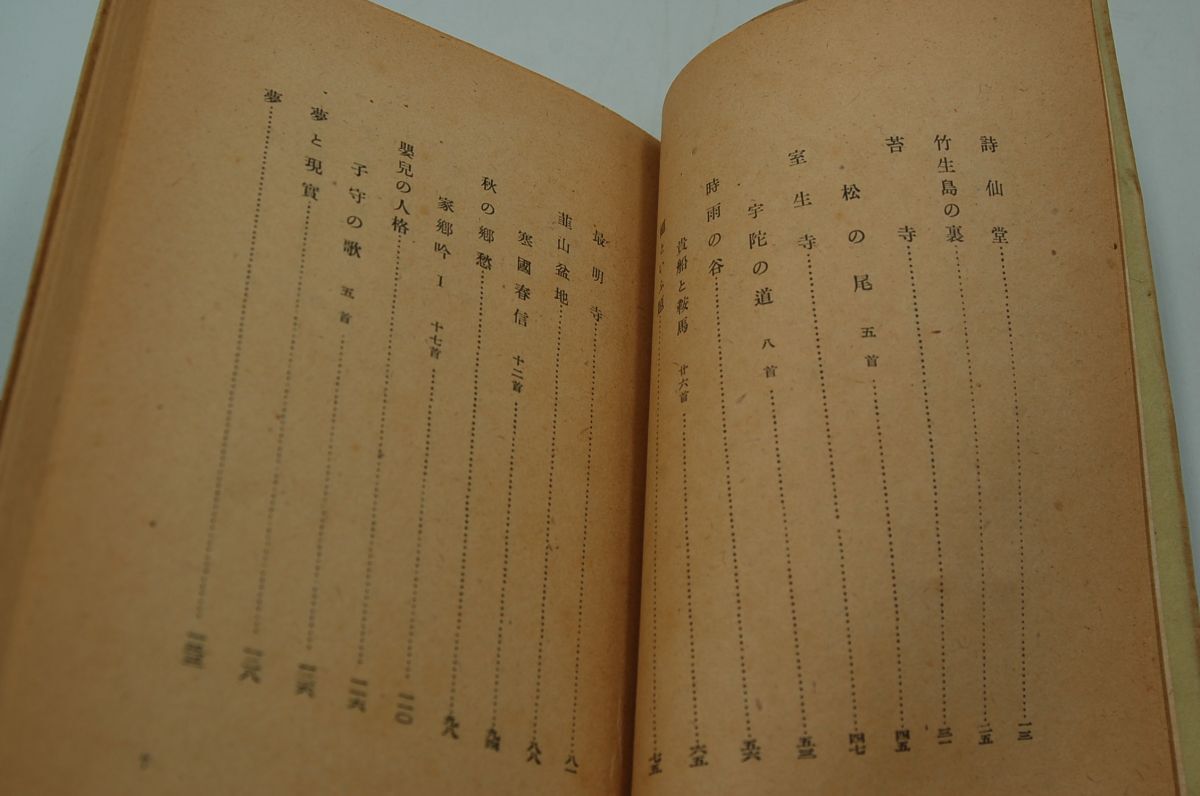 詩仙堂……一三
竹生島の裏……二五
苔寺……三一
松の尾 五首……四五
室生寺……四七
宇陀の道 八首……五三
時雨の谷……五六
貴船と鞍馬 廿六首……六五
七五
最明寺……八一
韮山盆地……八八
寒國春信 十二首……九四
秋の郷愁……九八
家郷吟 I 十七首……一一〇
嬰兒の人格……一一六
子守の歌 五首……一二六
夢と現實……一二八
夢……